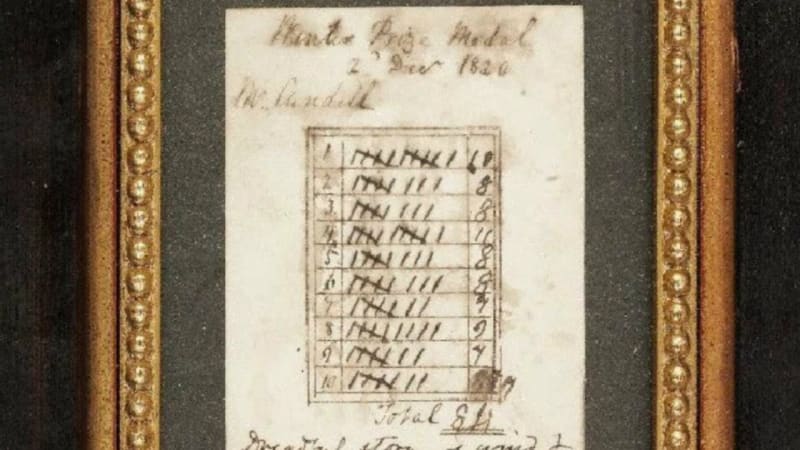 Winter Prize Medal
2d Dec 1820
Mr. Cundell
1
2 8
3 8
4 11
5 8
6 8
7 7
8 9
9 7
10 7
Total 84